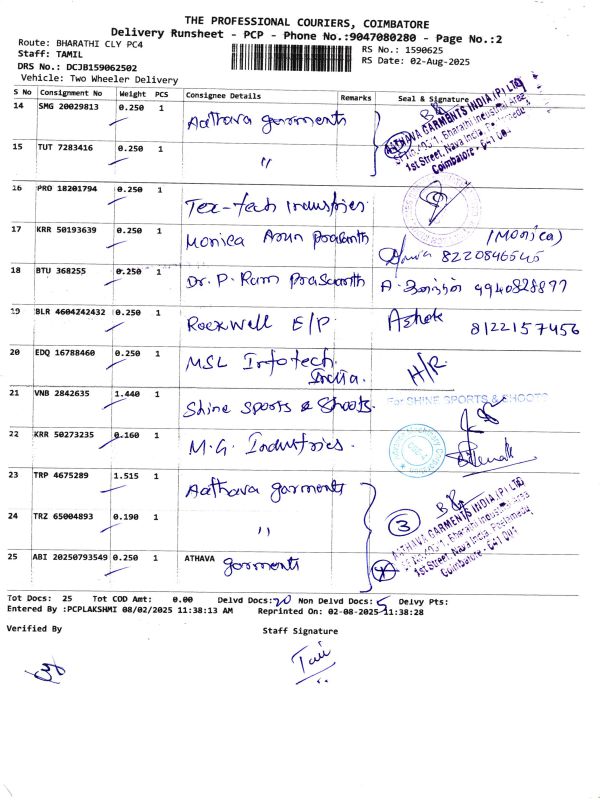 THE PROFESSIONAL COURIERS, COIMBATORE
Delivery Runsheet - PCP - Phone No.:9047080280 - Page No.:2
Route: BHARATHI CLY PC4
RS No.: 1590625
Staff: TAMIL
RS Date: 02-Aug-2025
DRS No.: DCJB159062502
Vehicle: Two Wheeler Delivery
S No Consignment No Weight PCS Consignee Details Remarks Seal & Signature
14 SMG 20029813 0.250 1 Aathava garments
15 TUT 7283416 0.250 1 "
AATHAVA GARMENTS INDIA (P) LTD
1st Street, Nava India, Peelamedu
Coimbatore
16 PRO 18201794 0.250 1 Tex-tech Industries
17 KRR 50193639 0.250 1 Monica Arun prasanth (Monica) 8220846545
18 BTU 368255 0.250 1 Dr. P. Ram prasanth 9940828877
19 BLR 4604242432 0.250 1 Rockwell E/P Ashok 8122157456
20 EDQ 16788460 0.250 1 MSL Infotech India. H/R
21 VNB 2842635 1.440 1 Shine sports & Shoots. For SHINE SPORTS & SHOOTS
22 KRR 50273235 0.160 1 M.G. Industries.
23 TRP 4675289 1.515 1 Aathava garments
24 TRZ 65004893 0.190 1 "
3
AATHAVA GARMENTS INDIA (P) LTD
1st Street, Nava India, Peelamedu
Coimbatore
25 ABI 20250793549 0.250 1 ATHAVA garments
Tot Docs: 25 Tot COD Amt: 0.00 Delvd Docs: 20 Non Delvd Docs: 5 Delvy Pts:
Entered By :PCPLAKSHMI 08/02/2025 11:38:13 AM Reprinted On: 02-08-2025 11:38:28
Verified By Staff Signature